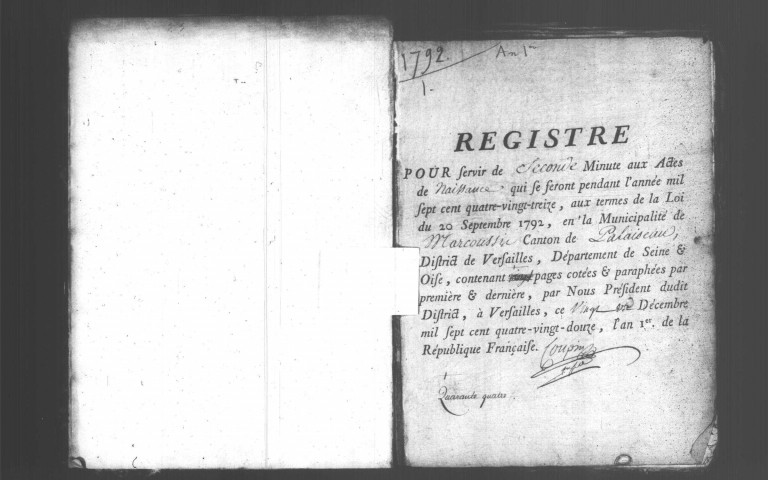 1792. An 1er
1.
REGISTRE
POUR ſervir de Seconde Minute aux Actes
de Naiſſance. qui ſe feront pendant l'année mil
ſept cent quatre-vingt-treize, aux termes de la Loi
du 20 Septembre 1792, en la Municipalité de
Marcoussis Canton de Palaiseau,
Diſtrict de Verſailles, Département de Seine &
Oiſe, contenant pages cotées & paraphées par
première & dernière, par Nous Préſident dudit
Diſtrict, à Verſailles, ce Vingt Décembre
mil ſept cent quatre-vingt-douze, l'an 1er. de la
République Françaiſe.
Quarante quatre